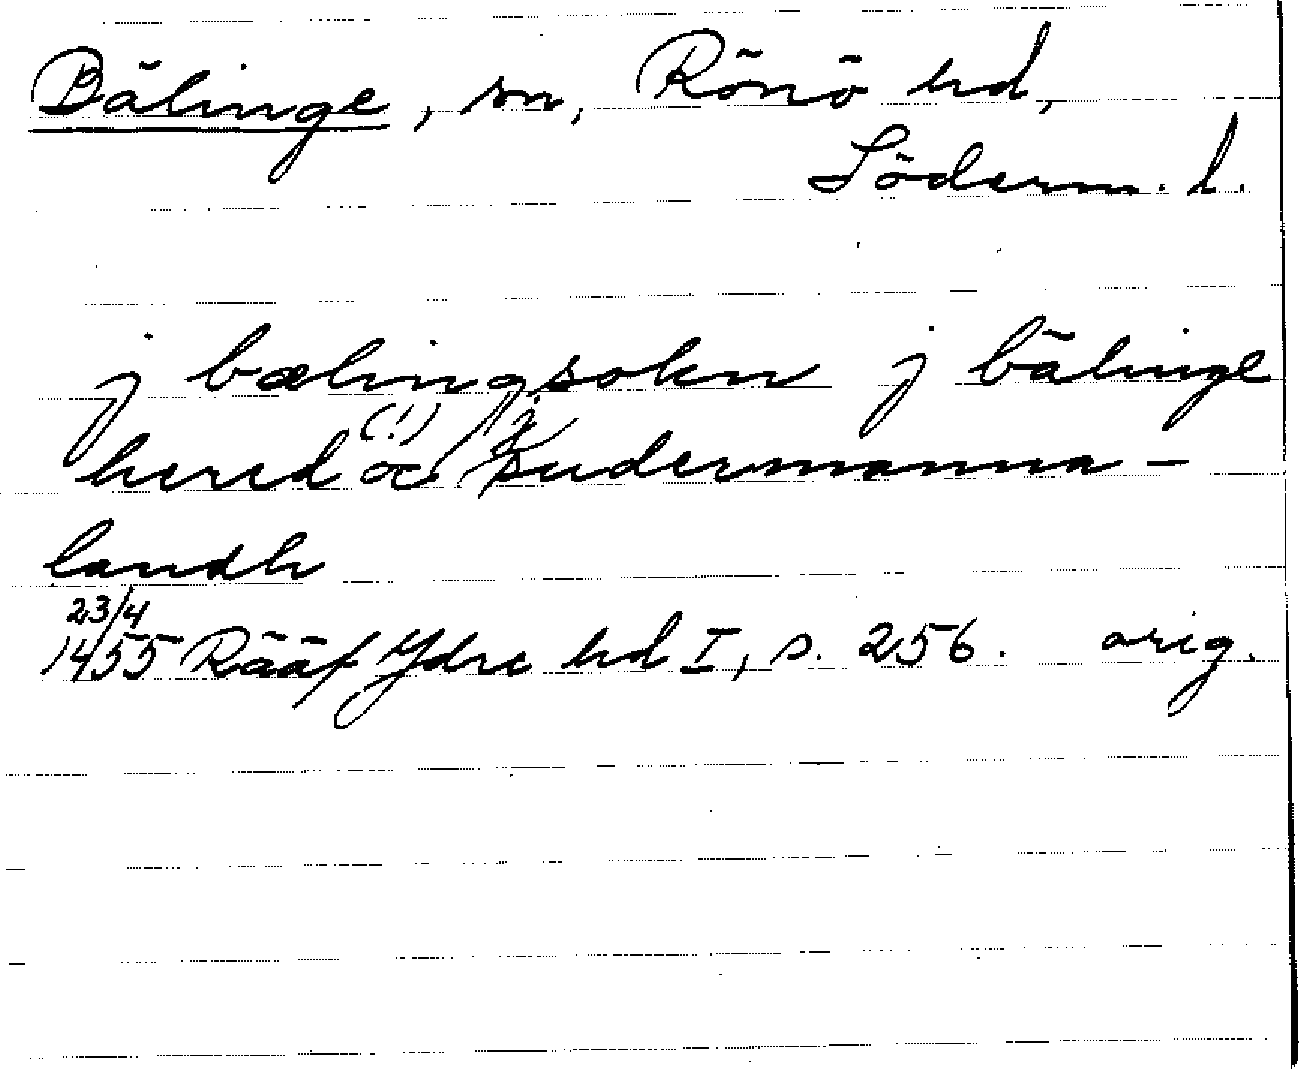 Bälinge, sn, Rönö hd,
Söderm. l.
j bælingsokn j bälinge
hered (!) oc j sudermanna-
landh
23/4
1455 Rääf Ydre hd I, s. 256. orig.